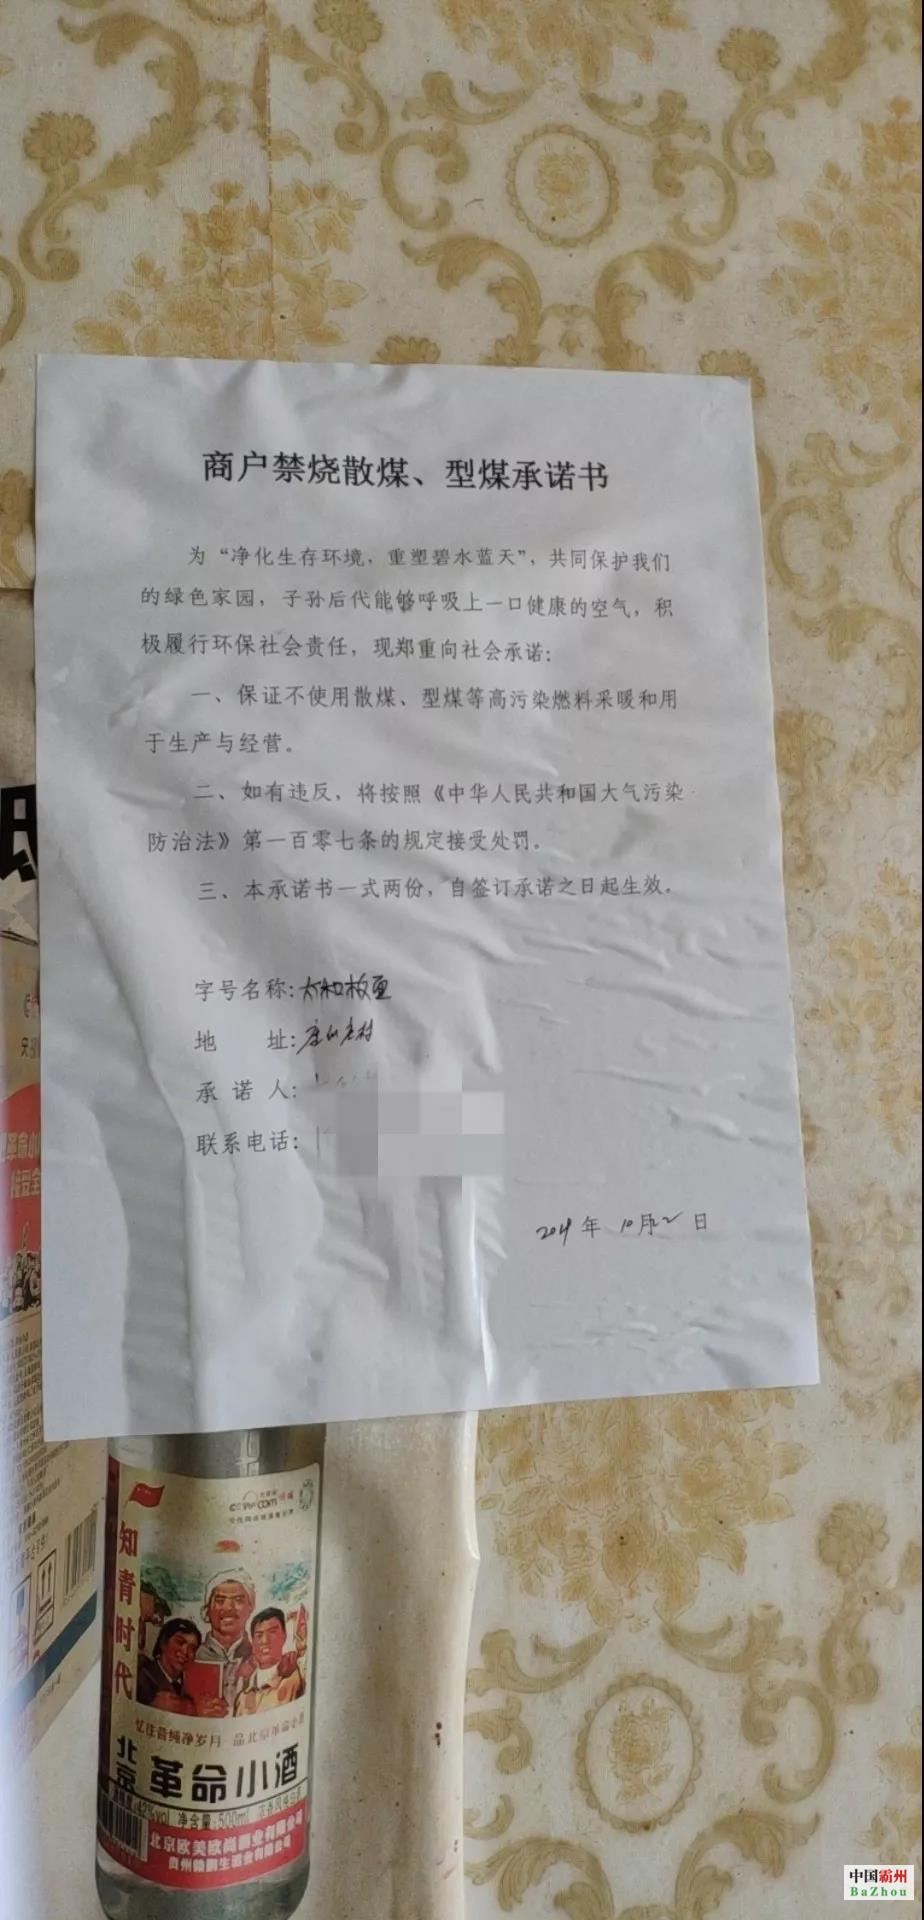 商户禁烧散煤、型煤承诺书
为“净化生存环境，重塑碧水蓝天”，共同保护我们
的绿色家园，子孙后代能够呼吸上一口健康的空气，积
极履行环保社会责任，现郑重向社会承诺：
一、保证不使用散煤、型煤等高污染燃料采暖和用
于生产与经营。
二、如有违反，将按照《中华人民共和国大气污染
防治法》第一百零七条的规定接受处罚。
三、本承诺书一式两份，自签订承诺之日起生效。
字号名称：太和板面
地 址：
承 诺 人：
联系电话：
年 10月 日
知青时代
忆往昔纯净岁月 品北京革命小酒
北京革命小酒
42%vol 净含量:500ml
北京欧美欧尚酒业有限公司
中国霸州
BaZhou